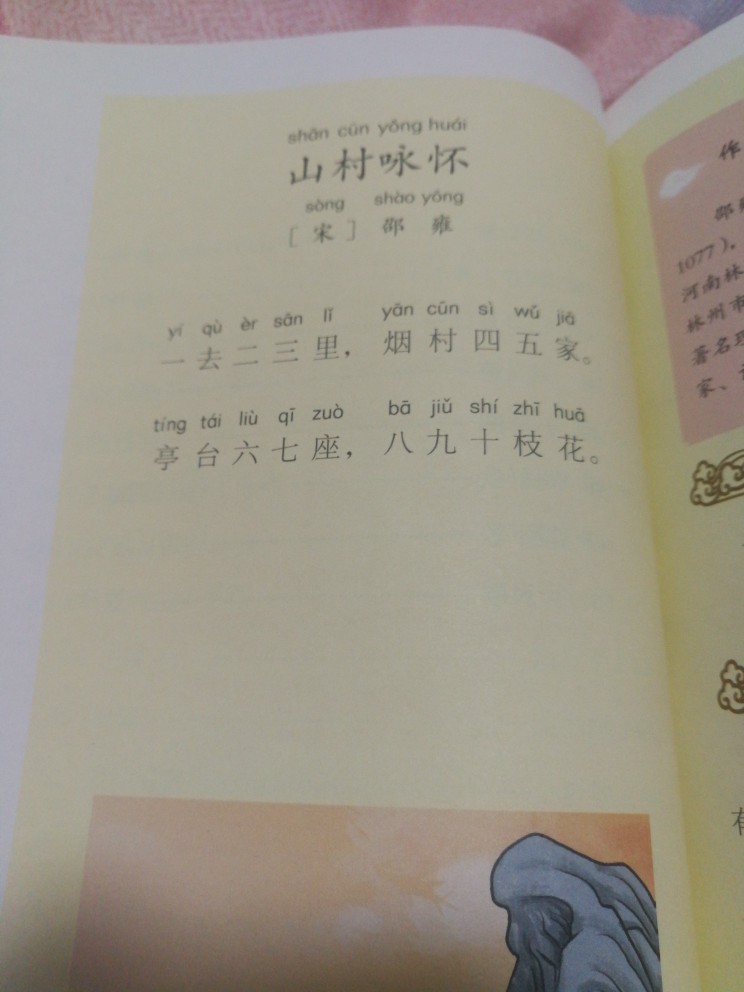 shān cūn yǒng huái
山村咏怀
sòng shào yōng
［宋］邵 雍
yí qù èr sān lǐ yān cūn sì wǔ jiā
一去二三里，烟村四五家。
tíng tái liù qī zuò bā jiǔ shí zhī huā
亭台六七座，八九十枝花。
作
邵雍
1077）。
河南林
林州市
著名理
家、
有